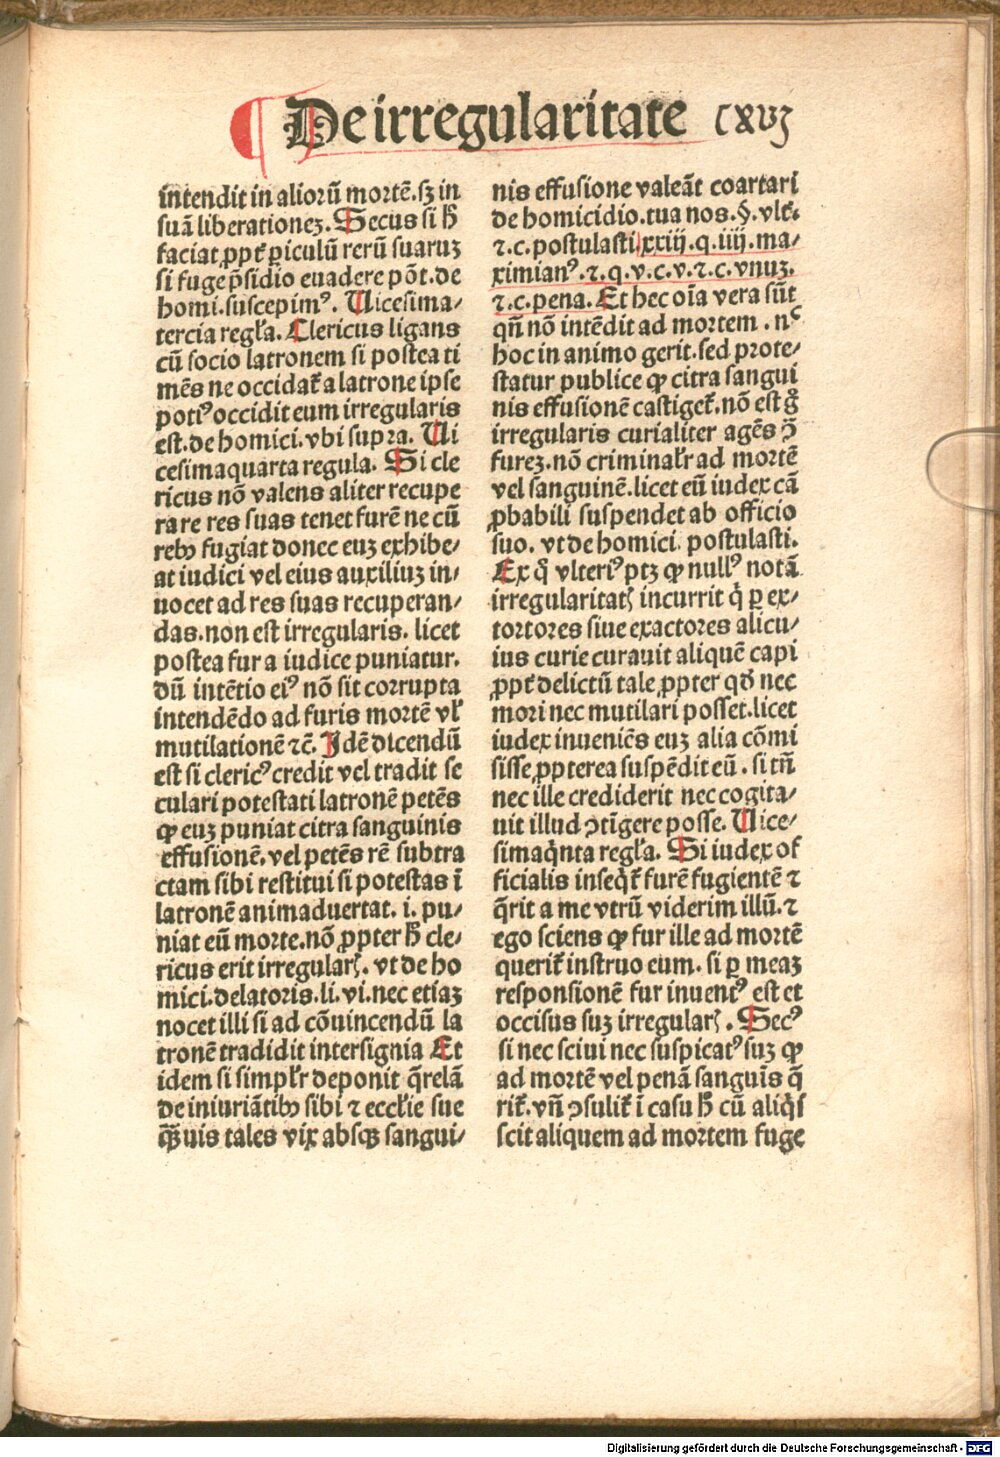 De irregularitate cxvꝫ
intendit in alioꝝ mortē.sꝫ in
suā liberationeꝫ. Secus si ꝉ
faciat ꝓpt̄ ꝑiculū rerū suaruꝫ
si fuge p̄sidio euadere pōt.de
homi.suscepimꝰ. Uicesima⸗
tercia regl̄a. Clericus ligans
cū socio latronem si postea ti
mēs ne occidat̄ a latrone ipse
potiꝰ occidit eum irregularis
est.de homici.vbi supra. Ui
cesimaquarta regula. Si cle
ricus nō valens aliter recupe
rare res suas tenet furē ne cū
rebꝰ fugiat donec euꝫ exhibe⸗
at iudici vel eius auxiliuꝫ in⸗
uocet ad res suas recuperan⸗
das.non est irregularis. licet
postea fur a iudice puniatur.
dū intētio eiꝰ nō sit corrupta
intendēdo ad furis mortē vl̄
mutilationē ⁊c̄. Idē dicendū
est si clericꝰ credit vel tradit se
culari potestati latronē petēs
ꝙ euꝫ puniat citra sanguinis
effusionē.vel petēs rē subtra
ctam sibi restitui si potestas ī
latronē animaduertat. i. pu⸗
niat eū morte.nō ꝓpter ꝉ cle⸗
ricus erit irregularꝭ. vt de ho
mici.delatoris.li.vi.nec etiaꝫ
nocet illi si ad cōuincendū la
tronē tradidit intersignia Et
idem si simpl̄r deponit q̄relā
de iniuriātibꝰ sibi ⁊ eccl̄ie sue
q̄ꝫuis tales vix absqꝫ sangui⸗
nis effusione valeāt coartari
de homicidio.tua nos.§.vlt̄.
⁊.c.postulasti.xxiij.q.iiij.ma⸗
ximianꝰ.⁊.q.v.c.v.⁊.c.vnuꝫ.
⁊.c.pena. Et hec oīa vera sūt
qn̄ nō intēdit ad mortem . nᶜ
hoc in animo gerit.sed prote⸗
statur publice ꝙ citra sangui
nis effusionē castiget̄.nō est g̊
irregularis curialiter agēs ꝯ̄
fureꝫ.nō criminal̄r ad mortē
vel sanguinē.licet eū iudex cā
ꝓbabili suspendet ab officio
suo. vt de homici. postulasti.
Ex q̊ vlteriꝰ ptꝫ ꝙ nullꝰ notā
irregularitatꝭ incurrit q̇ ꝑ ex⸗
tortores siue exactores alicu⸗
ius curie curauit aliquē capi
ꝓpt̄ delictū tale ꝓpter qd̄ nec
mori nec mutilari posset.licet
iudex inueniēs euꝫ alia cōmi
sisse ꝓpterea suspēdit eū . si tn̄
nec ille crediderit nec cogita⸗
uit illud ꝯtīgere posse. Uice⸗
simaq̇nta regl̄a. Si iudex of
ficialis inseq̇t̄ furē fugientē ⁊
q̄rit a me vtrū viderim illū.⁊
ego sciens ꝙ fur ille ad mortē
querit̄ instruo eum. si ꝑ meaꝫ
responsionē fur inuentꝰ est et
occisus suꝫ irregularꝭ . Secꝰ
si nec sciui nec suspicatꝰ suꝫ ꝙ
ad mortē vel penā sanguīs q̄
rit̄. vn̄ ꝯsulit̄ ī casu ꝉ cū aliq̇s
scit aliquem ad mortem fuge
Digitalisierung gefördert durch die Deutsche Forschungsgemeinschaft - DFG